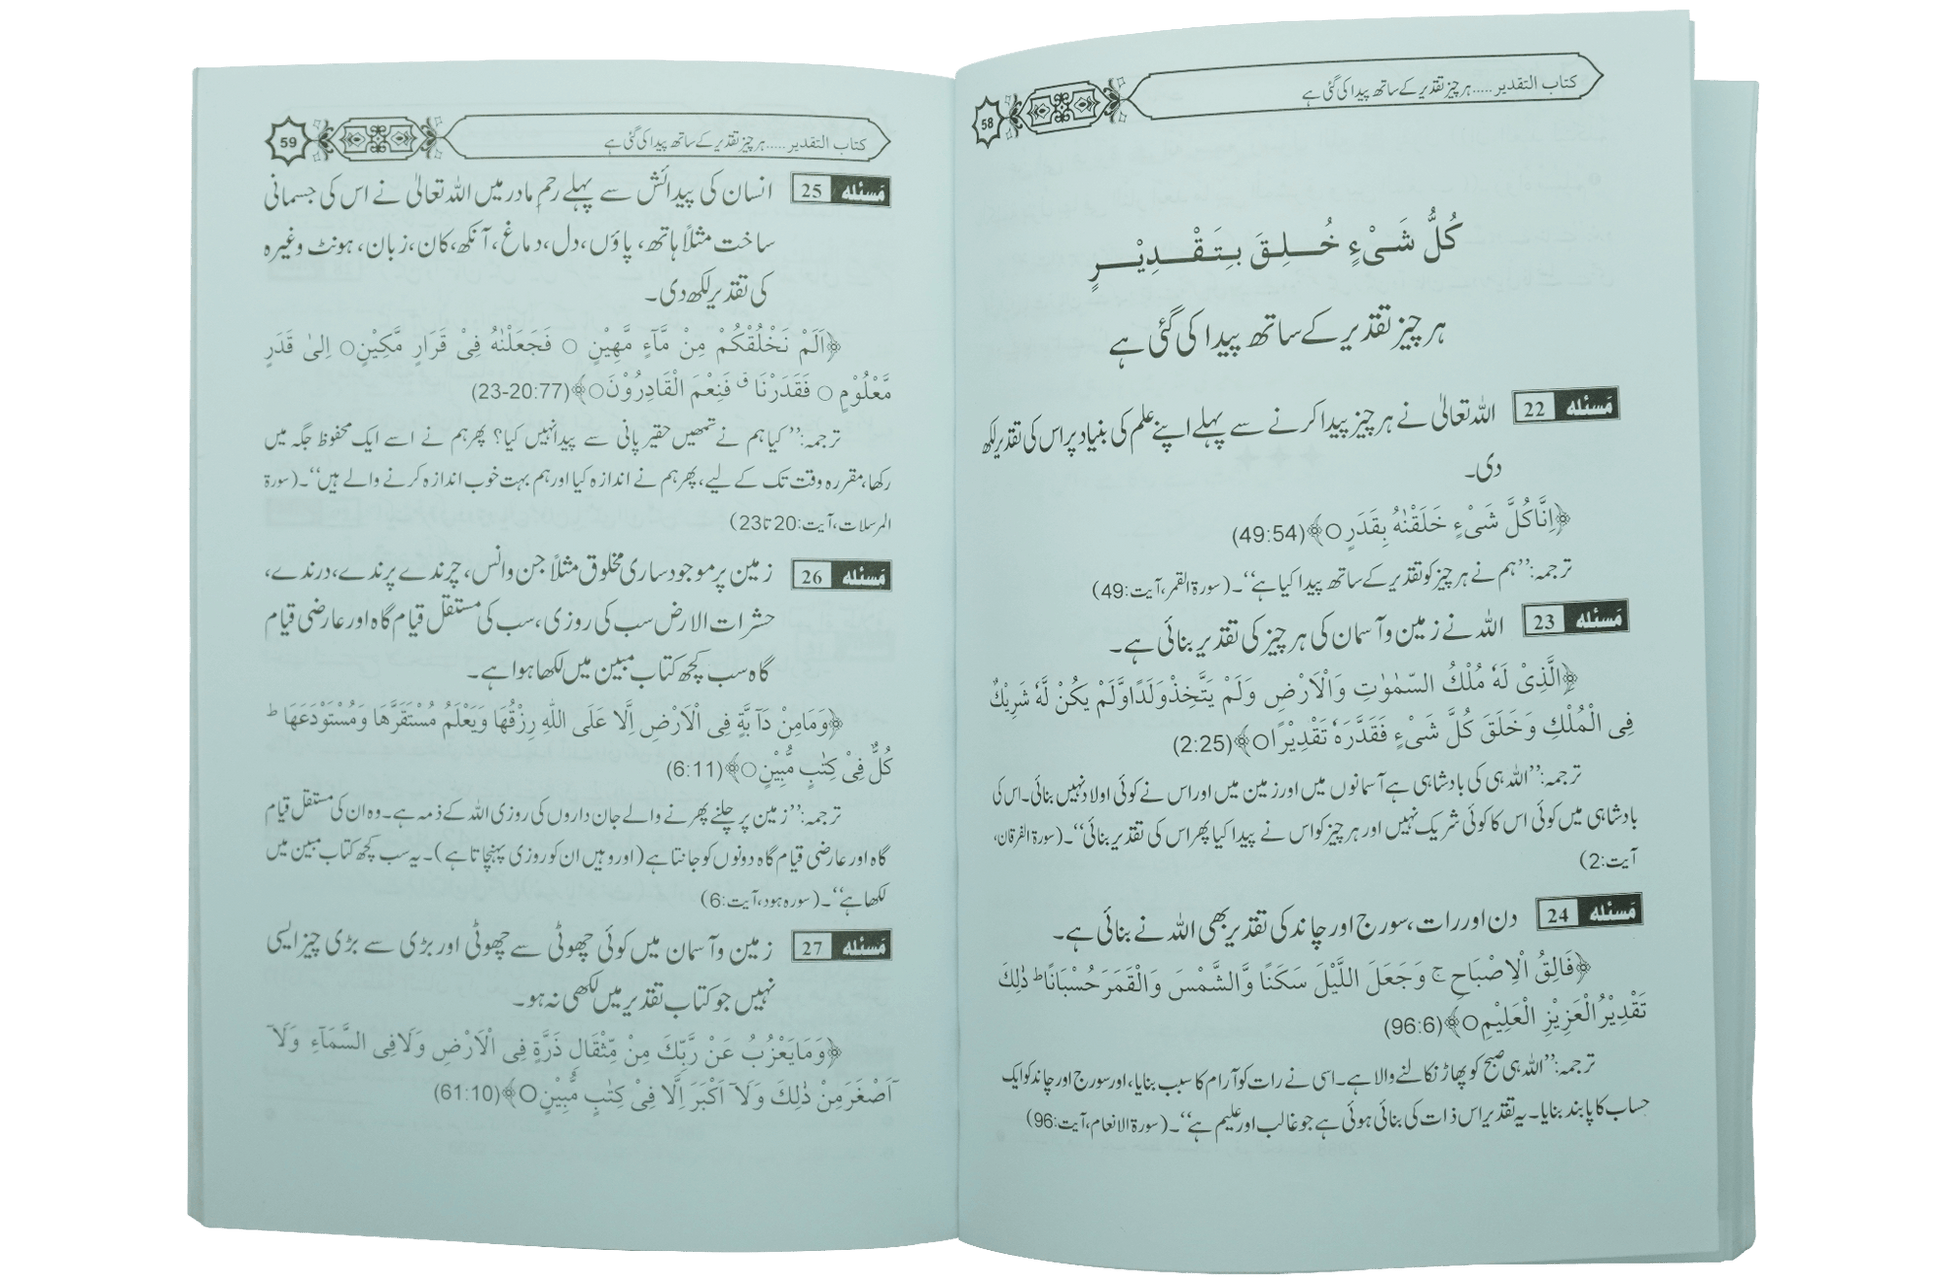 کتاب التقدیر.....ہر چیز تقدیر کے ساتھ پیدا کی گئی ہے
58
كُلُّ شَىْءٍ خُلِقَ بِتَقْدِيْرٍ
ہر چیز تقدیر کے ساتھ پیدا کی گئی ہے
مَسئله 22 اللہ تعالیٰ نے ہر چیز پیدا کرنے سے پہلے اپنے علم کی بنیاد پر اس کی تقدیر لکھ
دی۔
﴿اِنَّا كُلَّ شَىْءٍ خَلَقْنٰهُ بِقَدَرٍ○﴾(49:54)
ترجمہ:’’ہم نے ہر چیز کو تقدیر کے ساتھ پیدا کیا ہے‘‘۔(سورۃ القمر،آیت:49)
مَسئله 23 اللہ نے زمین و آسمان کی ہر چیز کی تقدیر بنائی ہے۔
﴿الَّذِىْ لَهٗ مُلْكُ السَّمٰوٰتِ وَالْاَرْضِ وَلَمْ يَتَّخِذْ وَلَدًا وَّلَمْ يَكُنْ لَّهٗ شَرِيْكٌ
فِى الْمُلْكِ وَخَلَقَ كُلَّ شَىْءٍ فَقَدَّرَهٗ تَقْدِيْرًا○﴾(2:25)
ترجمہ:’’اللہ ہی کی بادشاہی ہے آسمانوں میں اور زمین میں اور اس نے کوئی اولاد نہیں بنائی۔اس کی
بادشاہی میں کوئی اس کا کوئی شریک نہیں اور ہر چیز کو اس نے پیدا کیا پھر اس کی تقدیر بنائی‘‘۔(سورۃ الفرقان،
آیت:2)
مَسئله 24 دن اور رات، سورج اور چاند کی تقدیر بھی اللہ نے بنائی ہے۔
﴿فَالِقُ الْاِصْبَاحِ ج وَجَعَلَ اللَّيْلَ سَكَنًا وَّالشَّمْسَ وَالْقَمَرَ حُسْبَانًا ط ذٰلِكَ
تَقْدِيْرُ الْعَزِيْزِ الْعَلِيْمِ○﴾(96:6)
ترجمہ:’’اللہ ہی صبح کو پھاڑ نکالنے والا ہے۔اسی نے رات کو آرام کا سبب بنایا، اور سورج اور چاند کو ایک
حساب کا پابند بنایا۔ یہ تقدیر اس ذات کی بنائی ہوئی ہے جو غالب اور علیم ہے‘‘۔(سورۃ الانعام،آیت:96)
کتاب التقدیر.....ہر چیز تقدیر کے ساتھ پیدا کی گئی ہے
59
مَسئله 25 انسان کی پیدائش سے پہلے رحمِ مادر میں اللہ تعالیٰ نے اس کی جسمانی
ساخت مثلاً ہاتھ، پاؤں، دل، دماغ، آنکھ، کان، زبان، ہونٹ وغیرہ
کی تقدیر لکھ دی۔
﴿اَلَمْ نَخْلُقْكُمْ مِنْ مَّآءٍ مَّهِيْنٍ ○ فَجَعَلْنٰهُ فِىْ قَرَارٍ مَّكِيْنٍ○ اِلىٰ قَدَرٍ
مَّعْلُوْمٍ ○ فَقَدَرْنَا ق فَنِعْمَ الْقَادِرُوْنَ○﴾(23-20:77)
ترجمہ:’’کیا ہم نے تمھیں حقیر پانی سے پیدا نہیں کیا؟ پھر ہم نے اسے ایک محفوظ جگہ میں
رکھا، مقررہ وقت تک کے لیے، پھر ہم نے اندازہ کیا اور ہم بہت خوب اندازہ کرنے والے ہیں‘‘۔(سورۃ
المرسلات،آیت:20تا23)
مَسئله 26 زمین پر موجود ساری مخلوق مثلاً جن و انس، چرندے پرندے، درندے،
حشرات الارض سب کی روزی، سب کی مستقل قیام گاہ اور عارضی قیام
گاہ سب کچھ کتاب مبین میں لکھا ہوا ہے۔
﴿وَمَا مِنْ دَآبَّةٍ فِى الْاَرْضِ اِلَّا عَلَى اللّٰهِ رِزْقُهَا وَيَعْلَمُ مُسْتَقَرَّهَا وَمُسْتَوْدَعَهَا ط
كُلٌّ فِىْ كِتٰبٍ مُّبِيْنٍ○﴾(6:11)
ترجمہ:’’زمین پر چلنے پھرنے والے جان داروں کی روزی اللہ کے ذمہ ہے۔وہ ان کی مستقل قیام
گاہ اور عارضی قیام گاہ دونوں کو جانتا ہے (اور وہیں ان کو روزی پہنچاتا ہے)۔ یہ سب کچھ کتاب مبین میں
لکھا ہے‘‘۔(سورہ ہود،آیت:6)
مَسئله 27 زمین و آسمان میں کوئی چھوٹی سے چھوٹی اور بڑی سے بڑی چیز ایسی
نہیں جو کتاب تقدیر میں لکھی نہ ہو۔
﴿وَمَا يَعْزُبُ عَنْ رَّبِّكَ مِنْ مِّثْقَالِ ذَرَّةٍ فِى الْاَرْضِ وَلَا فِى السَّمَآءِ وَلَآ
اَصْغَرَ مِنْ ذٰلِكَ وَلَآ اَكْبَرَ اِلَّا فِىْ كِتٰبٍ مُّبِيْنٍ○﴾(61:10)